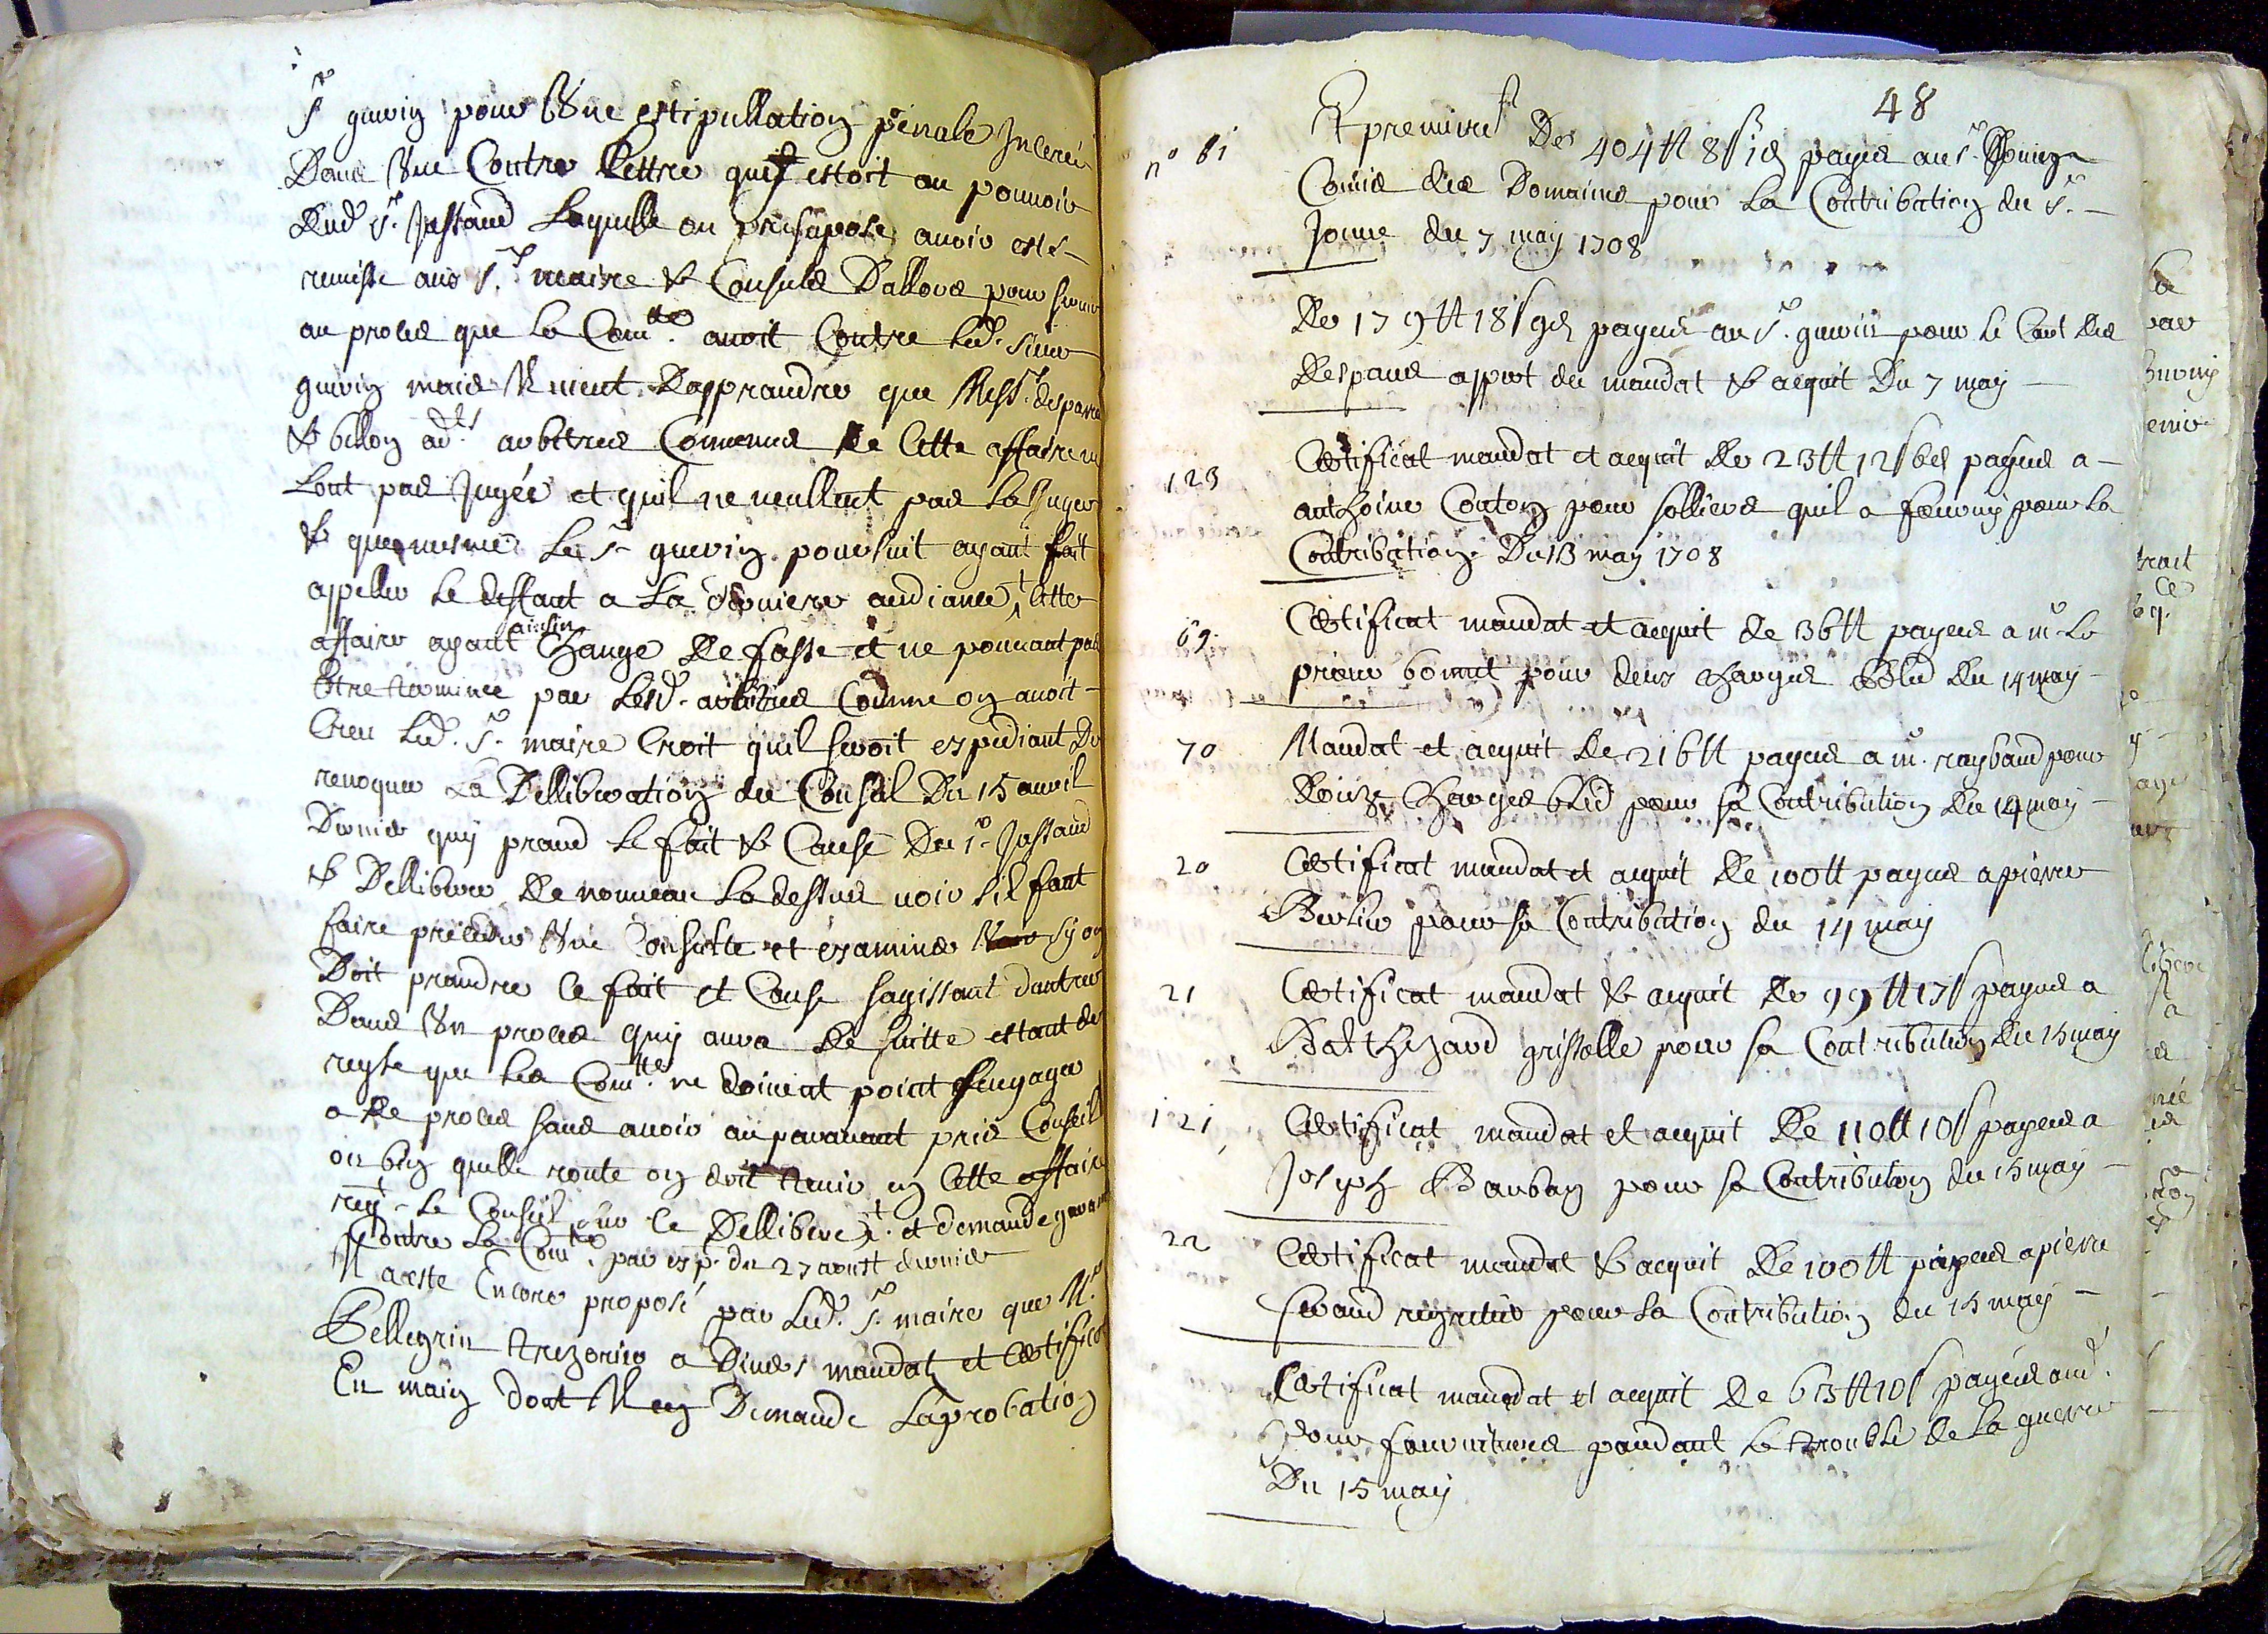 Sr guerin pour Une estipullation penale Inceréé
Dans Une Contre Lettre quy estoit au pouvoir
Dud Sr. Jassaud Laquelle on presuposé avoir esté
remise aux Srs maire & Consuls Dallons pour servir
au procès que la Comte. avoit Contre led. sieur
guerin mais Il vient Dapprandre que Messrs. despares
& billon adts arbitres Convenus De Cette affaire ne
Lont pas Jugéé et quil ne veullent pas la Juger
& que mesme Le Sr guerin poursuit ayant fait
appeller le deffant a La derniere audiance, + Cette
affaire ayant ainsin Change De fasse et ne pouvant pas
Etre terminéé par Lesd. arbitres Comme on avoit
Creu Led. Sr. maire Croit quil seroit expediant De
revoquer La Delliberation du Conseil Du 15 avril
Dernier quy prand le fait & Cause Du Sr. Jassaud
& Dellibere De nouveau La dessus voir sil faut
faire preceder Une Consulte et examiner sy on
Doit prandre le fait et Cause sagissant dantrer
Dans Un procès quy aura De suitte estant de
regle que Les Comtes. ne doivent point sengager
a De procès sans avoir auparavant pris Conseil
ou bien quelle route on doit tenir en Cette affaire
requt. le Conseil sur ce Dellibere + et demande garantie
Contre La Comte. par exp. du 27 aoust dernier
A este Encore proposé par Led. Sr. maire que Mr
Pellegrin trezorier a Divers mandats et Certificats
En main dont Il en Demande Laprobation
48
Et premiert
n° 61 De 404tt 8s 1d payés au Sr.
Comis des Domaines pour la Contribution du Sr.
Jonne du 7 may 1708
De 179tt 18s 9d payés au Sr. guerin pour le Cart des
Despans appert du mandat & acquit Du 7 may
123 Certificat mandat et acquit De 23tt 12s 6d payés a
anthoine Couton pour solliers quil a fourny pour la
Contribution Du 13 may 1708
69 Certificat mandat et acquit de 36tt payés a mr. Le
prieur bonnet pour deux charges Bled du 14 may
70 Mandat et acquit De 216tt payés a mr. raybaud pour
Douze Charges bled pour sa Contribution Du 14 may
20 Certificat mandat et acquit De 100tt payés a pierre
Berlier pour sa Contribution du 14 may
21 Certificat mandat & acquit De 99tt 17s payés a
Balthezard grisolle pour sa Contribution Du 15 may
121 Certificat mandat et acquit De 110tt 10s payés a
Joseph Bauban pour sa Contribution du 15 may
22 Certificat mandat & acquit De 100tt payés a pierre
feraud pour la Contribution du 15 may
Certificat mandat et acquit De 613tt 10s payés aud.
pour fournitures pandant le trouble De la guerre
Du 15 may